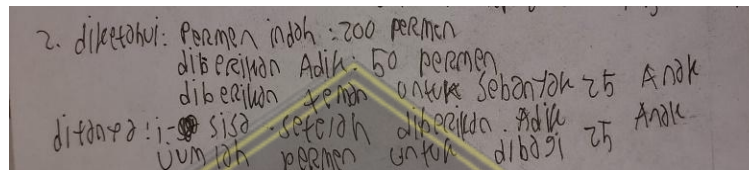 2. diketahui: Permen indah : 200 permen
diberikan Adik : 50 permen
diberikan teman untuk sebanyak 25 Anak
ditanya : i- sisa setelah diberikan Adik
Jumlah permen untuk dibagi 25 Anak